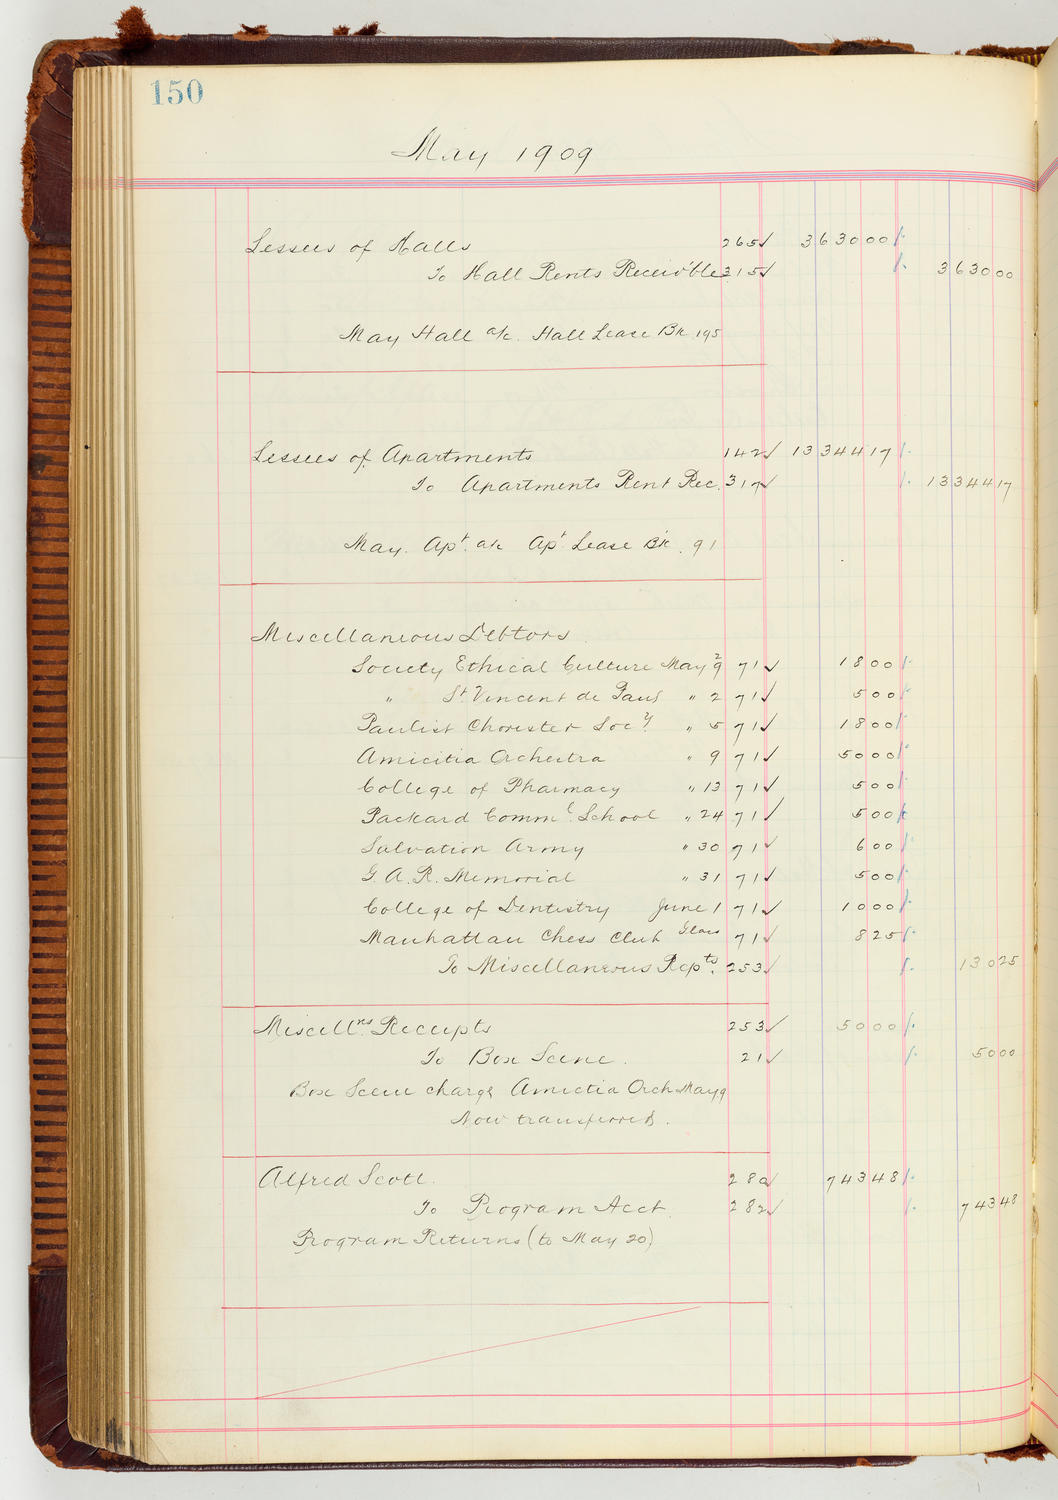 150
May 1909
Lessees of Halls 265✓ 3630 00
To Hall Rents Receiv'ble 315✓ 3630 00
May Hall a/c. Hall Lease Bk 195
Lessees of Apartments 142✓ 13344 17
To Apartments Rent Rec. 317✓ 13344 17
May. Apt. a/c Apt Lease Bk. 91
Miscellaneous Debtors
Society Ethical Culture May 2 9 71✓ 18 00
" St Vincent de Paul " 2 71✓ 5 00
Paulist Chorister Socy. " 5 71✓ 18 00
Amicitia Orchestra " 9 71✓ 50 00
College of Pharmacy " 13 71✓ 5 00
Packard Comml. School " 24 71✓ 5 00
Salvation Army " 30 71✓ 6 00
G. A. R. Memorial " 31 71✓ 5 00
College of Dentistry June 1 71✓ 10 00
Manhattan Chess Club Glass 71✓ 8 25
To Miscellaneous Rcpts. 253✓ 130 25
Miscellns Receipts 253✓ 50 00
To Box Scene. 21✓ 50 00
Box Scene charge Amicitia Orch May 9
Now transferred.
Alfred Scott. 280✓ 743 48
To Program Acct 282✓ 743 48
Program Returns (to May 20)